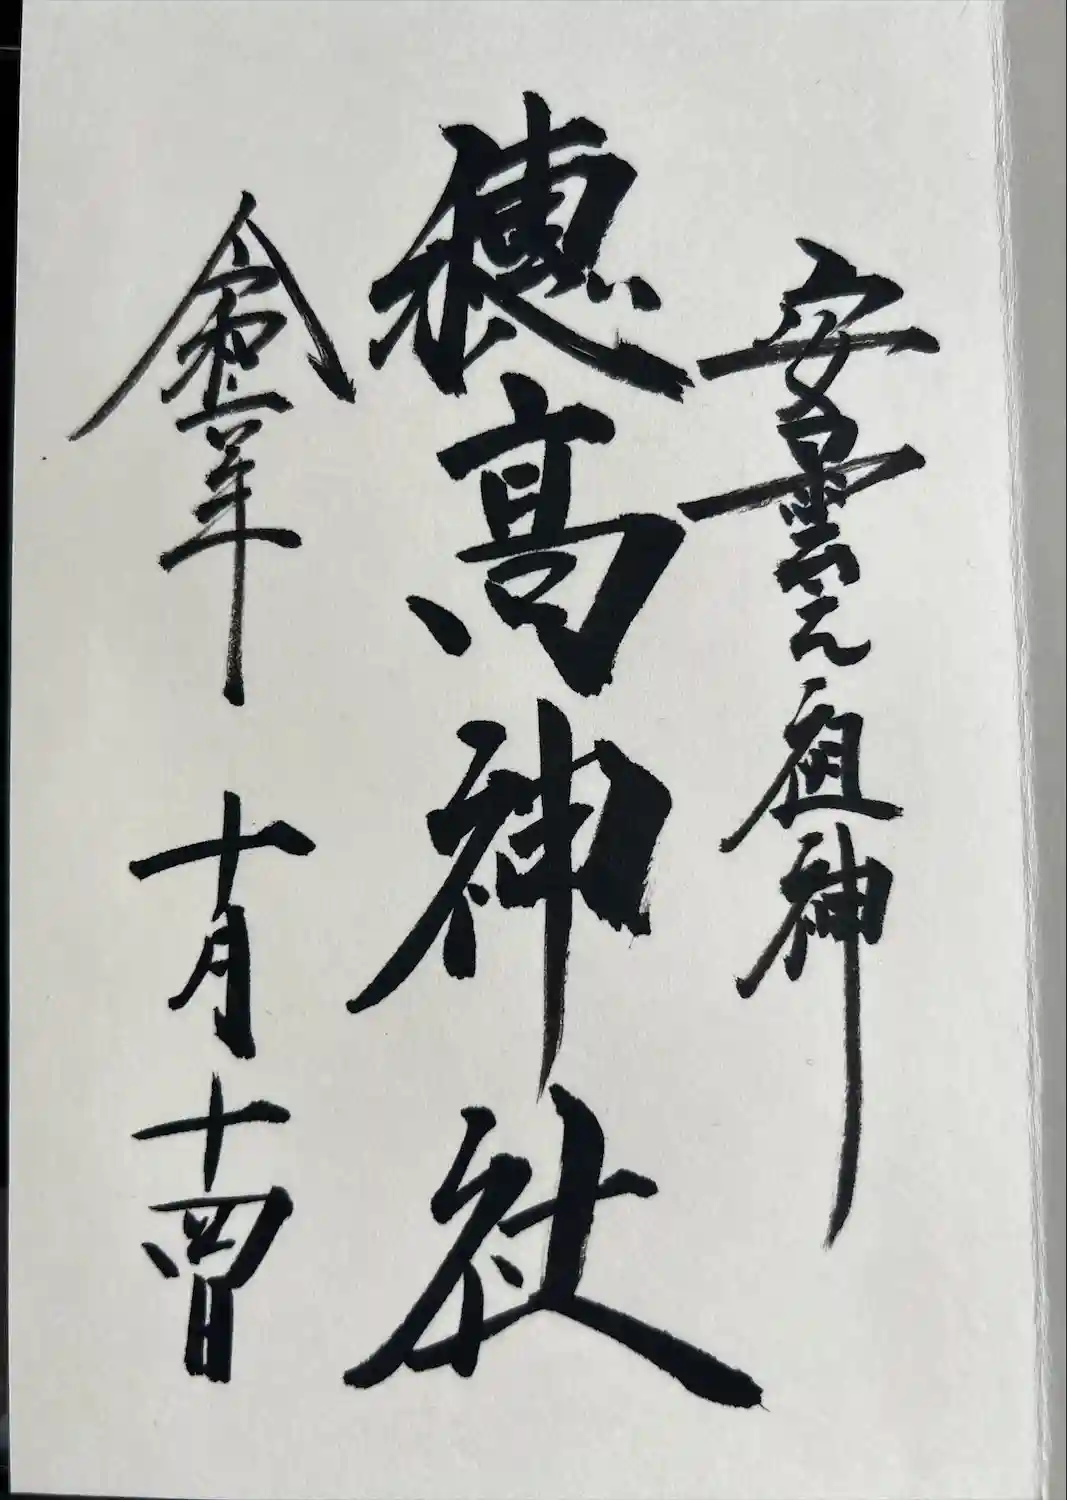 安曇祖神
穂髙神社
令和年 十月十四日